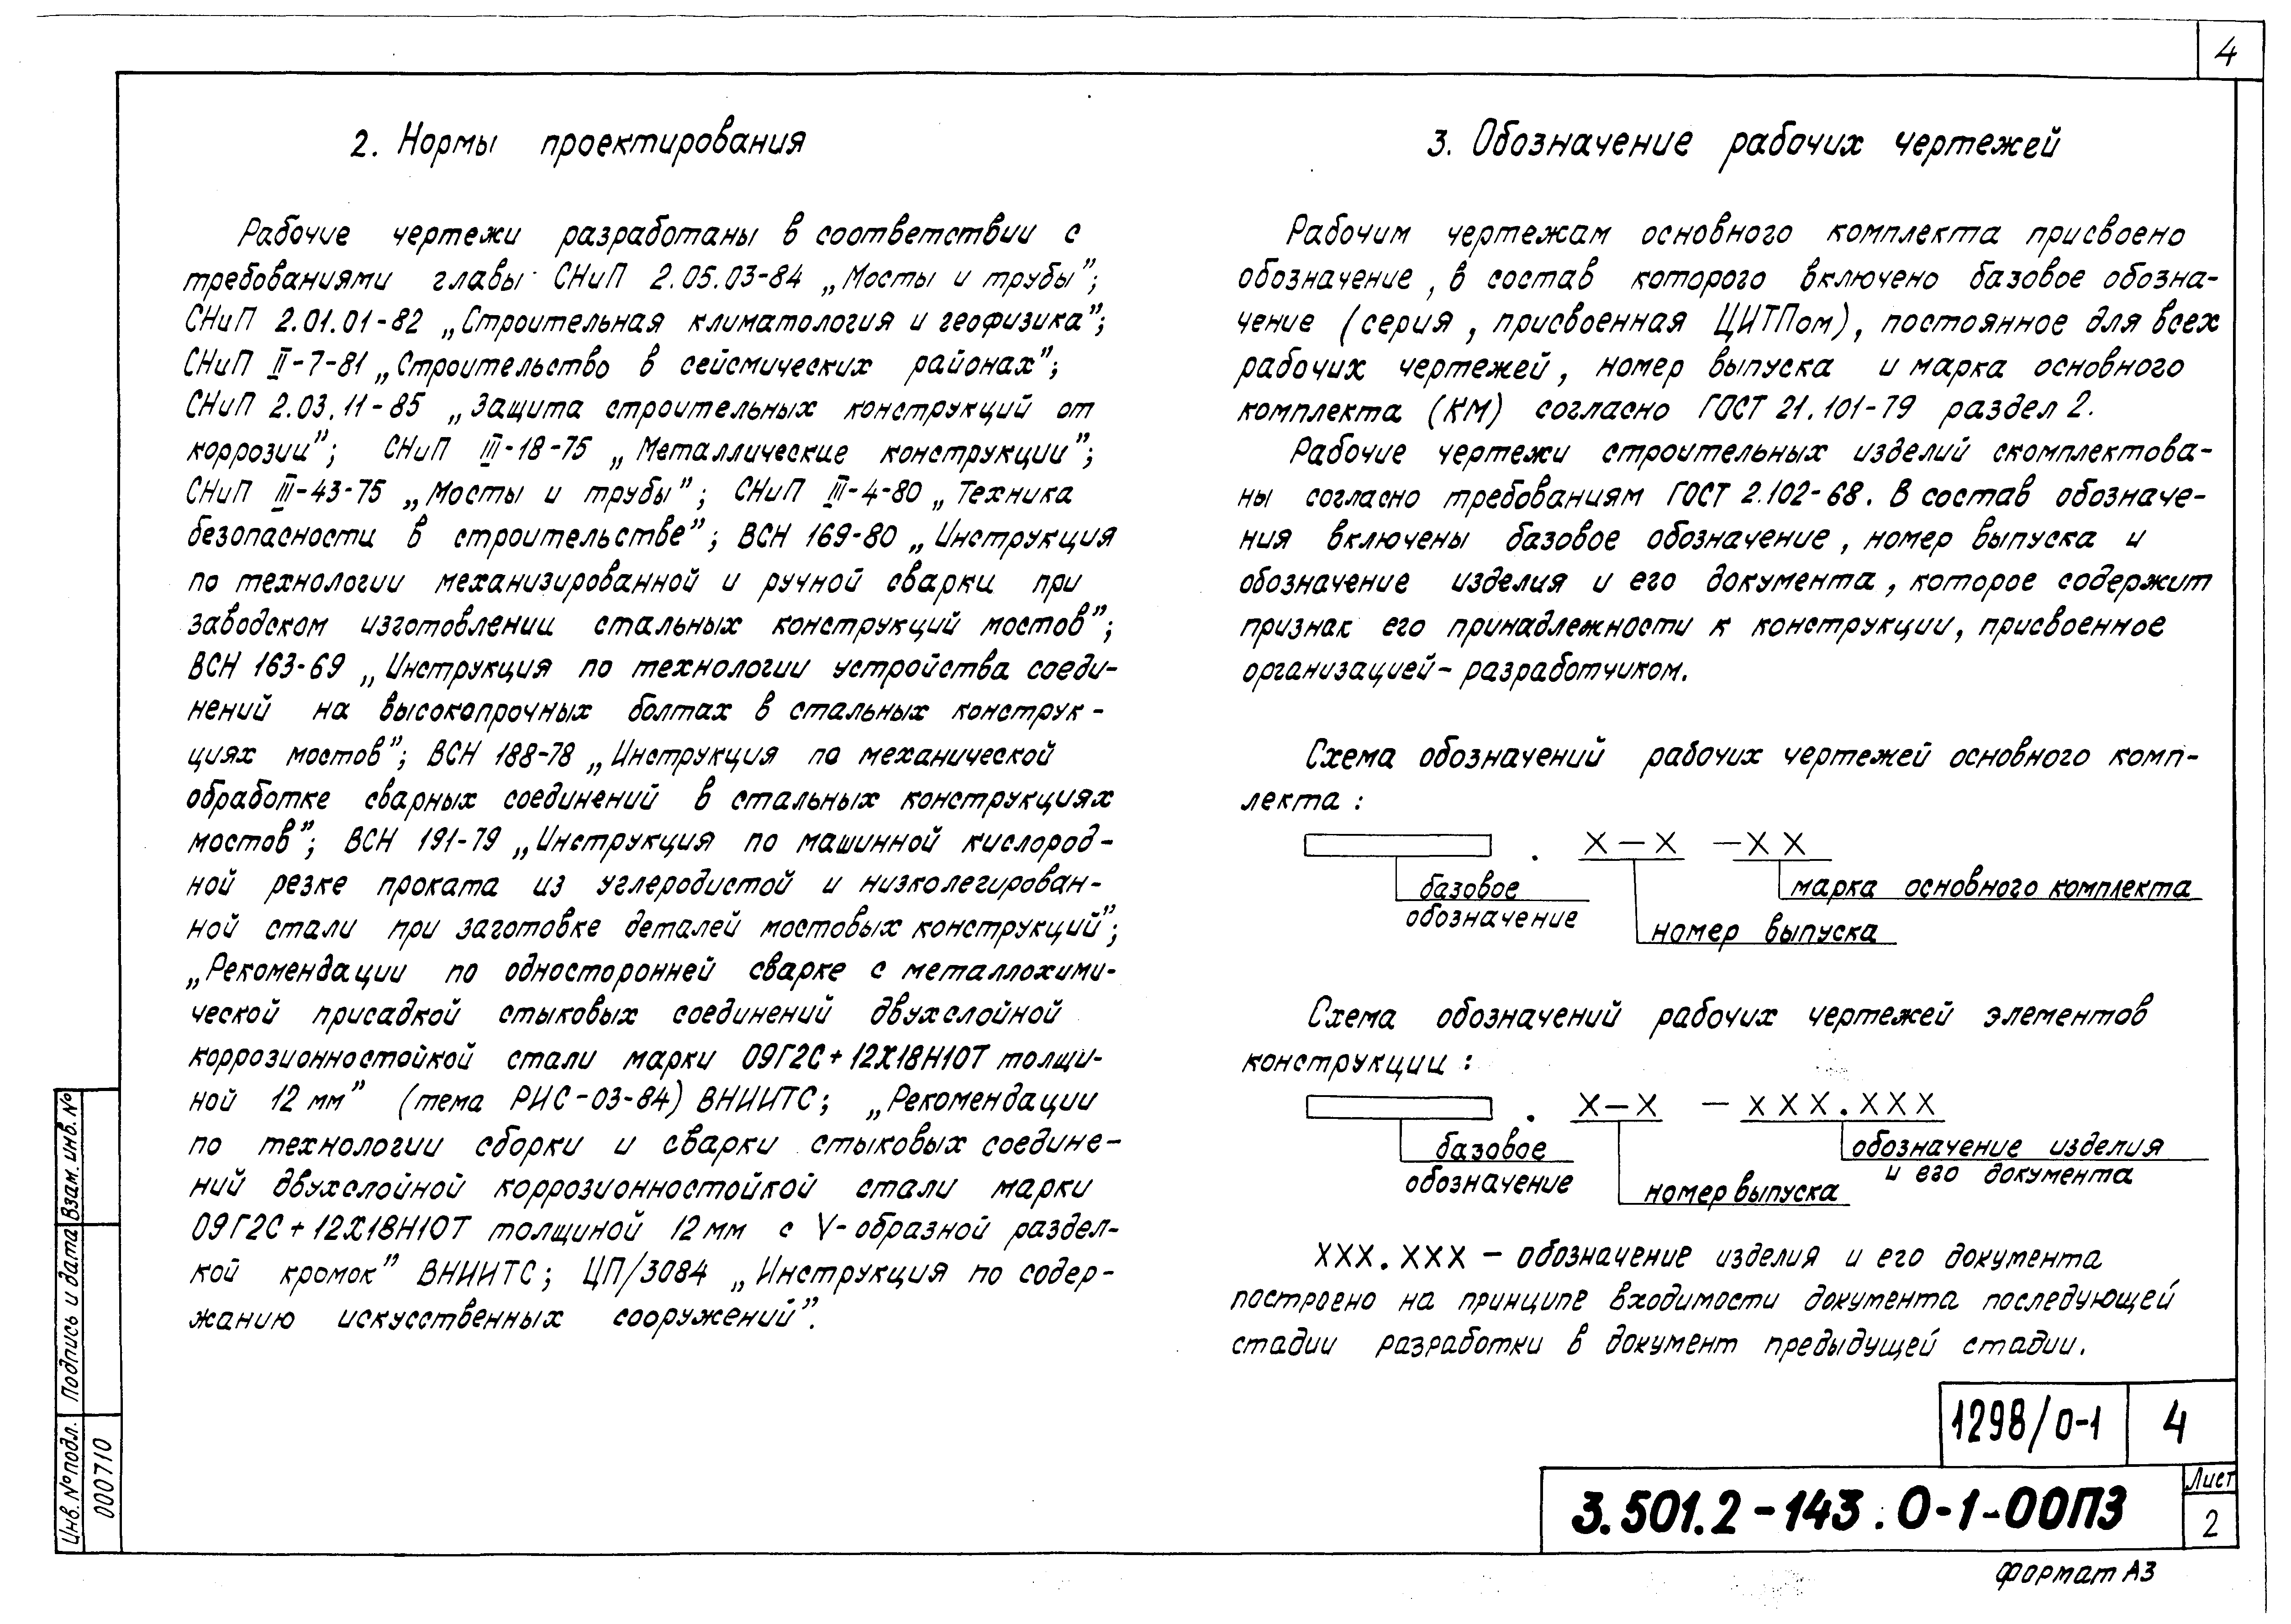 4
2. Нормы проектирования
Рабочие чертежи разработаны в соответствии с
требованиями главы СНиП 2.05.03-84 „Мосты и трубы”;
СНиП 2.01.01-82 „Строительная климатология и геофизика”;
СНиП II-7-81 „Строительство в сейсмических районах”;
СНиП 2.03.11-85 „Защита строительных конструкций от
коррозии”; СНиП III-18-75 „Металлические конструкции”;
СНиП III-43-75 „Мосты и трубы”; СНиП III-4-80 „Техника
безопасности в строительстве”; ВСН 169-80 „Инструкция
по технологии механизированной и ручной сварки при
заводском изготовлении стальных конструкций мостов”;
ВСН 163-69 „Инструкция по технологии устройства соеди-
нений на высокопрочных болтах в стальных конструк-
циях мостов”; ВСН 188-78 „Инструкция по механической
обработке сварных соединений в стальных конструкциях
мостов”; ВСН 191-79 „Инструкция по машинной кислород-
ной резке проката из углеродистой и низколегирован-
ной стали при заготовке деталей мостовых конструкций”;
„Рекомендации по односторонней сварке с металлохими-
ческой присадкой стыковых соединений двухслойной
коррозионностойкой стали марки 09Г2С+12Х18Н10Т толщи-
ной 12 мм” (тема РИС-03-84) ВНИИТС; „Рекомендации
по технологии сборки и сварки стыковых соедине-
ний двухслойной коррозионностойкой стали марки
09Г2С+12Х18Н10Т толщиной 12 мм с V-образной раздел-
кой кромок” ВНИИТС; ЦП/3084 „Инструкция по содер-
жанию искусственных сооружений”.
3. Обозначение рабочих чертежей
Рабочим чертежам основного комплекта присвоено
обозначение, в состав которого включено базовое обозна-
чение (серия, присвоенная ЦИТПом), постоянное для всех
рабочих чертежей, номер выпуска и марка основного
комплекта (КМ) согласно ГОСТ 21.101-79 раздел 2.
Рабочие чертежи строительных изделий скомплектова-
ны согласно требованиям ГОСТ 2.102-68. В состав обозначе-
ния включены базовое обозначение, номер выпуска и
обозначение изделия и его документа, которое содержит
признак его принадлежности к конструкции, присвоенное
организацией-разработчиком.
Схема обозначений рабочих чертежей основного комп-
лекта:
. Х-Х -ХХ
базовое
обозначение
номер выпуска
марка основного комплекта
Схема обозначений рабочих чертежей элементов
конструкции:
. Х-Х - ХХХ.ХХХ
базовое
обозначение
номер выпуска
обозначение изделия
и его документа
ХХХ.ХХХ - обозначение изделия и его документа
построено на принципе входимости документа последующей
стадии разработки в документ предыдущей стадии.
1298/0-1 4
3.501.2-143.0-1-00ПЗ
Лист
2
Формат А3
Инв. № подл. Подпись и дата Взам. инв. №
000710